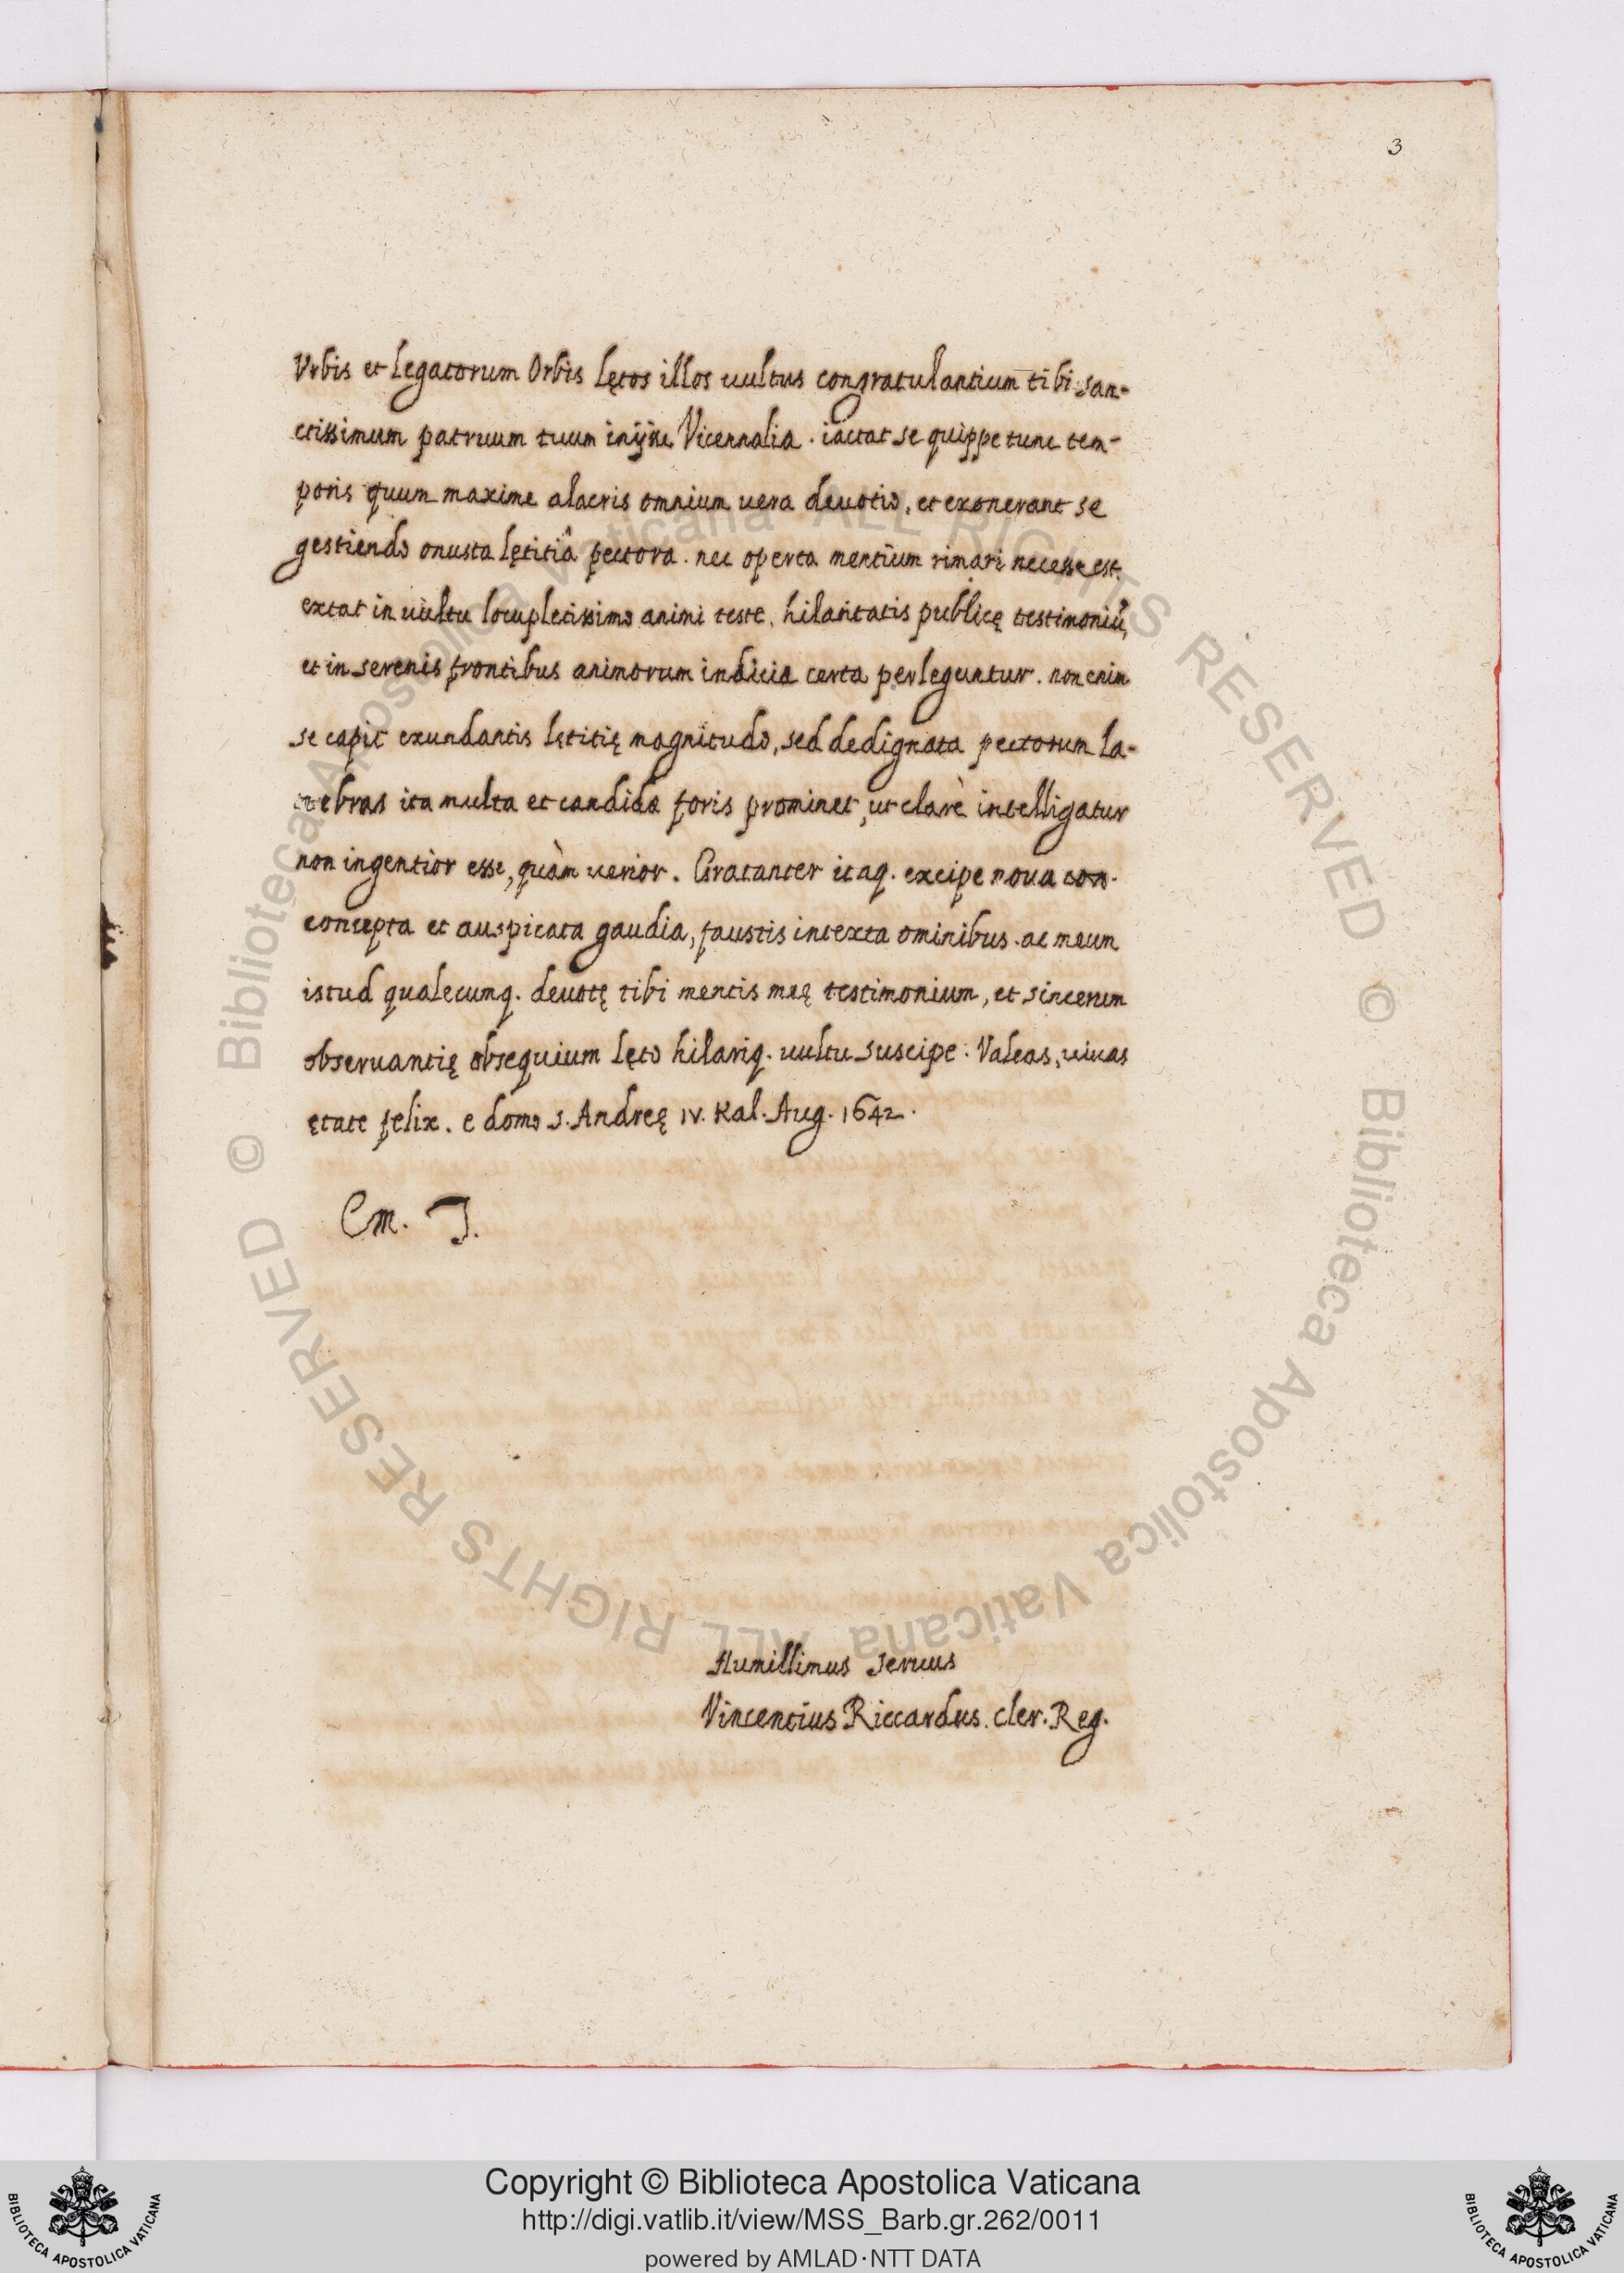 3
Vrbis et legatorum Orbis lętos illos uultus congratulantium tibi san-
ctissimum patruum tuum inijsse Vicennalia. iactat se quippe tunc tem-
poris quum maxime alacris omnium uera deuotio, et exonerant se
gestiendo onusta lętitiâ pectora. nec operta mentium rimari necesse est.
extat in uultu locupletissimo animi teste, hilaritatis publicę testimoniũ,
et in serenis frontibus animorum indicia certa perleguntur. non enim
se capit exundantis lętitię magnitudo, sed dedignata pectorum la-
tebras ita multa et candida foris prominet, ut clarè intelligatur
non ingentior esse, quàm uerior. Gratanter itaq. excipe noua con-
concepta et auspicata gaudia, faustis intexta ominibus. ac meum
istud qualecunq. deuotę tibi mentis meę testimonium, et sincerum
obseruantię obsequium lęto hilariq. uultu suscipe. Valeas, uiuas
ętate felix. e domo S. Andreę IV. Kal. Aug. 1642.
Em. T.
Humillimus seruus
Vincentius Riccardus. Cler. Reg.
© Biblioteca Apostolica Vaticana ALL RIGHTS RESERVED © Biblioteca Apostolica Vaticana ALL RIGHTS RESERVED
BIBLIOTECA APOSTOLICA VATICANA
Copyright © Biblioteca Apostolica Vaticana
http://digi.vatlib.it/view/MSS_Barb.gr.262/0011
powered by AMLAD·NTT DATA
BIBLIOTECA APOSTOLICA VATICANA